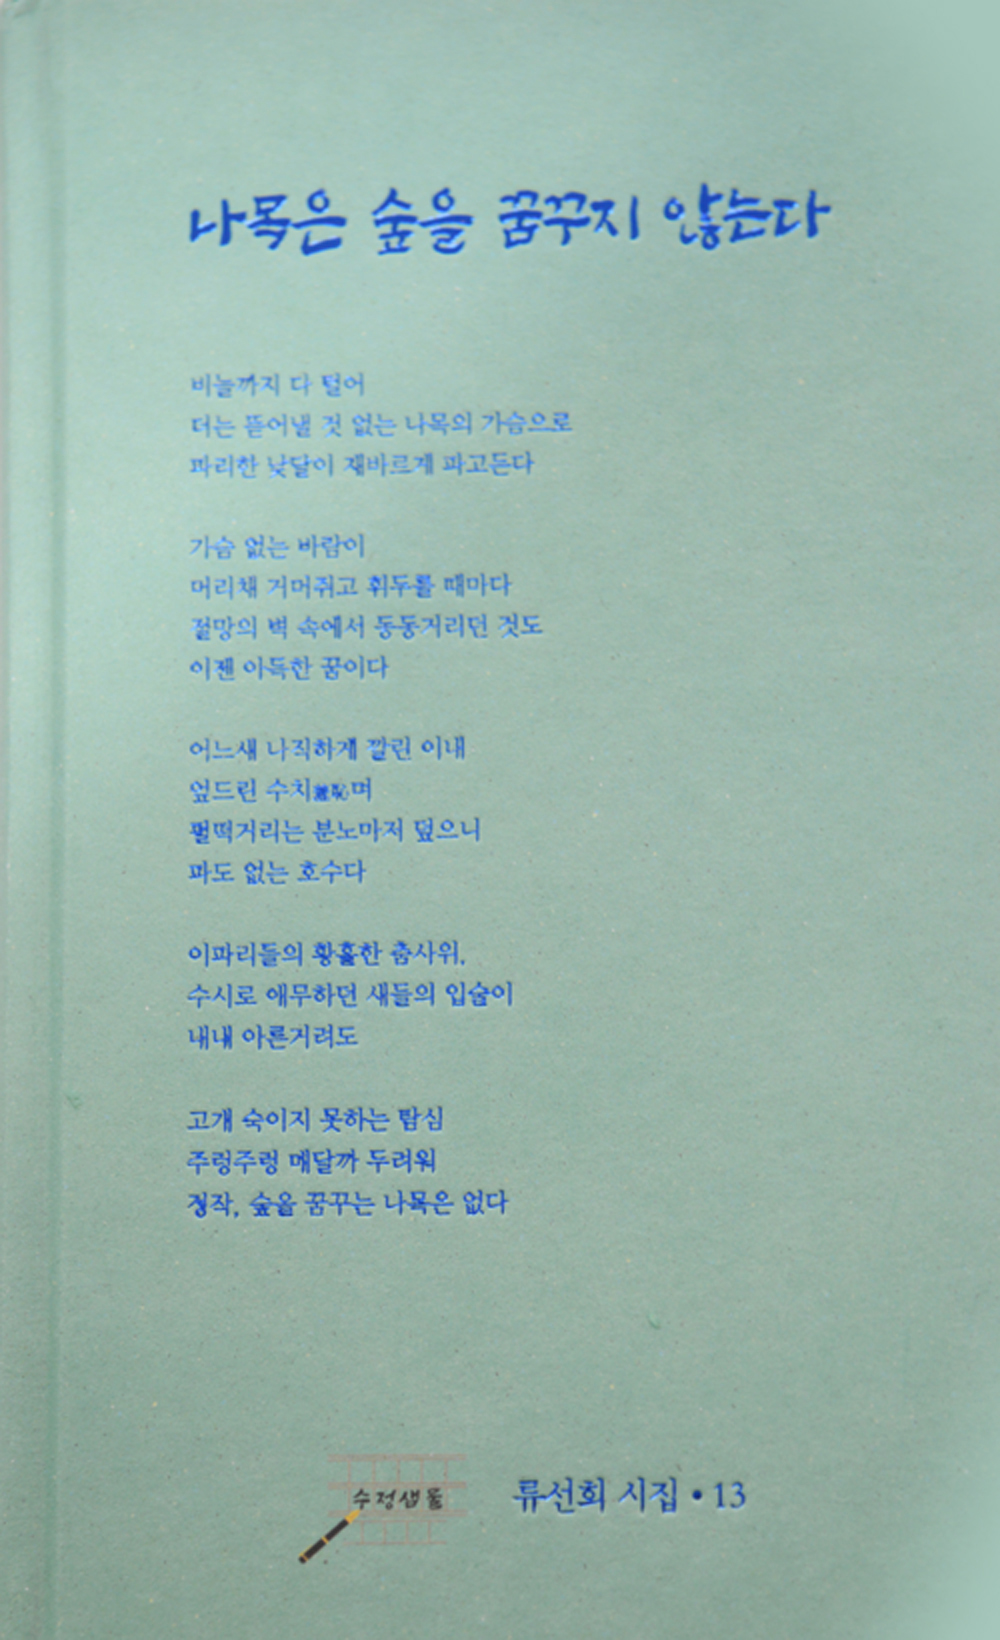 나목은 숲을 꿈꾸지 않는다
비늘까지 다 털어
더는 뜯어낼 것 없는 나목의 가슴으로
파리한 낮달이 재바르게 파고든다
가슴 없는 바람이
머리채 거머쥐고 휘두를 때마다
절망의 벽 속에서 동동거리던 것도
이젠 아득한 꿈이다
어느새 나직하게 깔린 이내
엎드린 수치羞恥며
펄떡거리는 분노마저 덮으니
파도 없는 호수다
이파리들의 황홀한 춤사위,
수시로 애무하던 새들의 입술이
내내 아른거려도
고개 숙이지 못하는 탐심
주렁주렁 매달까 두려워
정작, 숲을 꿈꾸는 나목은 없다
수정샘물
류선희 시집 • 13